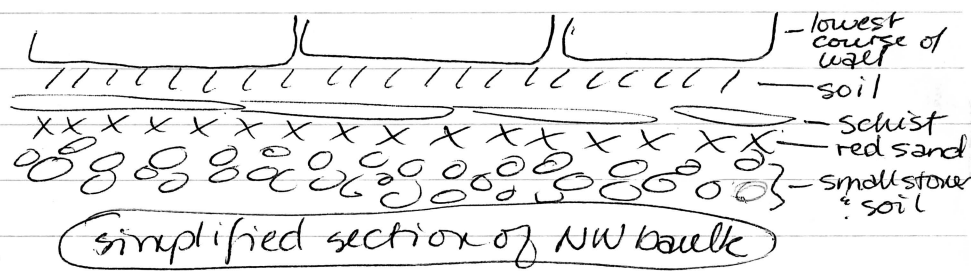 lowest
course of
wall
soil
schist
red sand
small stone
& soil
simplified section of NW baulk